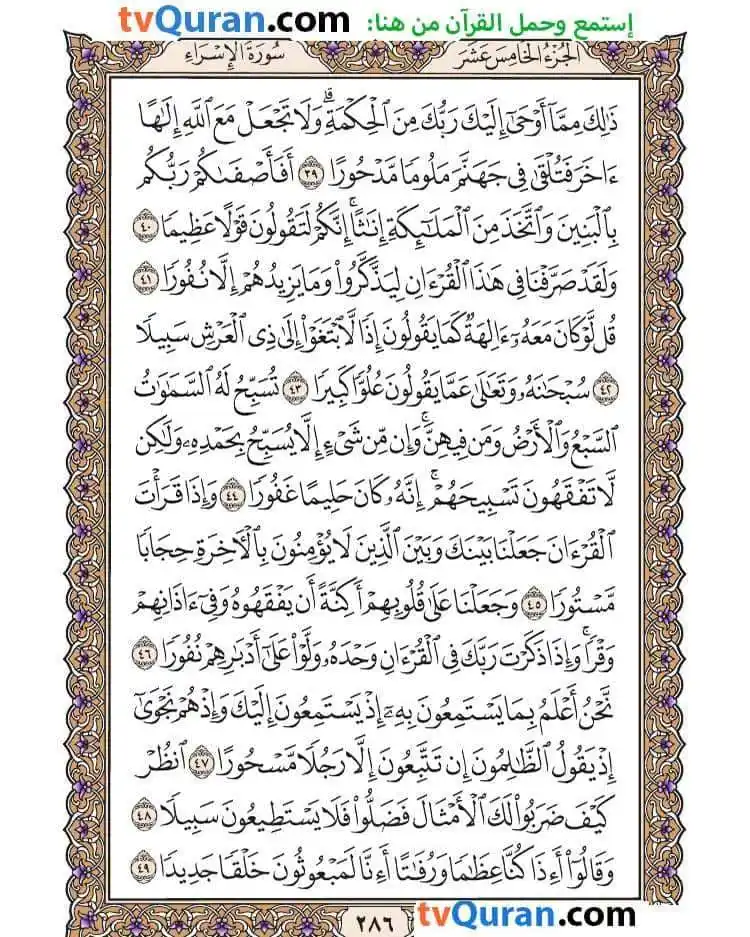 tvQuran.com إستمع وحمل القرآن من هنا:
الجُزْءُ الخَامِسَ عَشَرَ سُورَةُ الإِسْرَاءِ
ذَٰلِكَ مِمَّآ أَوْحَىٰٓ إِلَيْكَ رَبُّكَ مِنَ ٱلْحِكْمَةِۗ وَلَا تَجْعَلْ مَعَ ٱللَّهِ إِلَٰهًا
ءَاخَرَ فَتُلْقَىٰ فِى جَهَنَّمَ مَلُومًا مَّدْحُورًا ٣٩ أَفَأَصْفَىٰكُمْ رَبُّكُم
بِٱلْبَنِينَ وَٱتَّخَذَ مِنَ ٱلْمَلَٰٓئِكَةِ إِنَٰثًاۚ إِنَّكُمْ لَتَقُولُونَ قَوْلًا عَظِيمًا ٤٠
وَلَقَدْ صَرَّفْنَا فِى هَٰذَا ٱلْقُرْءَانِ لِيَذَّكَّرُوا۟ وَمَا يَزِيدُهُمْ إِلَّا نُفُورًا ٤١
قُل لَّوْ كَانَ مَعَهُۥٓ ءَالِهَةٌ كَمَا يَقُولُونَ إِذًا لَّٱبْتَغَوْا۟ إِلَىٰ ذِى ٱلْعَرْشِ سَبِيلًا
٤٢ سُبْحَٰنَهُۥ وَتَعَٰلَىٰ عَمَّا يَقُولُونَ عُلُوًّا كَبِيرًا ٤٣ تُسَبِّحُ لَهُ ٱلسَّمَٰوَٰتُ
ٱلسَّبْعُ وَٱلْأَرْضُ وَمَن فِيهِنَّۚ وَإِن مِّن شَىْءٍ إِلَّا يُسَبِّحُ بِحَمْدِهِۦ وَلَٰكِن
لَّا تَفْقَهُونَ تَسْبِيحَهُمْۗ إِنَّهُۥ كَانَ حَلِيمًا غَفُورًا ٤٤ وَإِذَا قَرَأْتَ
ٱلْقُرْءَانَ جَعَلْنَا بَيْنَكَ وَبَيْنَ ٱلَّذِينَ لَا يُؤْمِنُونَ بِٱلْءَاخِرَةِ حِجَابًا
مَّسْتُورًا ٤٥ وَجَعَلْنَا عَلَىٰ قُلُوبِهِمْ أَكِنَّةً أَن يَفْقَهُوهُ وَفِىٓ ءَاذَانِهِمْ
وَقْرًاۚ وَإِذَا ذَكَرْتَ رَبَّكَ فِى ٱلْقُرْءَانِ وَحْدَهُۥ وَلَّوْا۟ عَلَىٰٓ أَدْبَٰرِهِمْ نُفُورًا ٤٦
نَّحْنُ أَعْلَمُ بِمَا يَسْتَمِعُونَ بِهِۦٓ إِذْ يَسْتَمِعُونَ إِلَيْكَ وَإِذْ هُمْ نَجْوَىٰٓ
إِذْ يَقُولُ ٱلظَّٰلِمُونَ إِن تَتَّبِعُونَ إِلَّا رَجُلًا مَّسْحُورًا ٤٧ ٱنظُرْ
كَيْفَ ضَرَبُوا۟ لَكَ ٱلْأَمْثَالَ فَضَلُّوا۟ فَلَا يَسْتَطِيعُونَ سَبِيلًا ٤٨
وَقَالُوٓا۟ أَءِذَا كُنَّا عِظَٰمًا وَرُفَٰتًا أَءِنَّا لَمَبْعُوثُونَ خَلْقًا جَدِيدًا ٤٩
٢٨٦ tvQuran.com